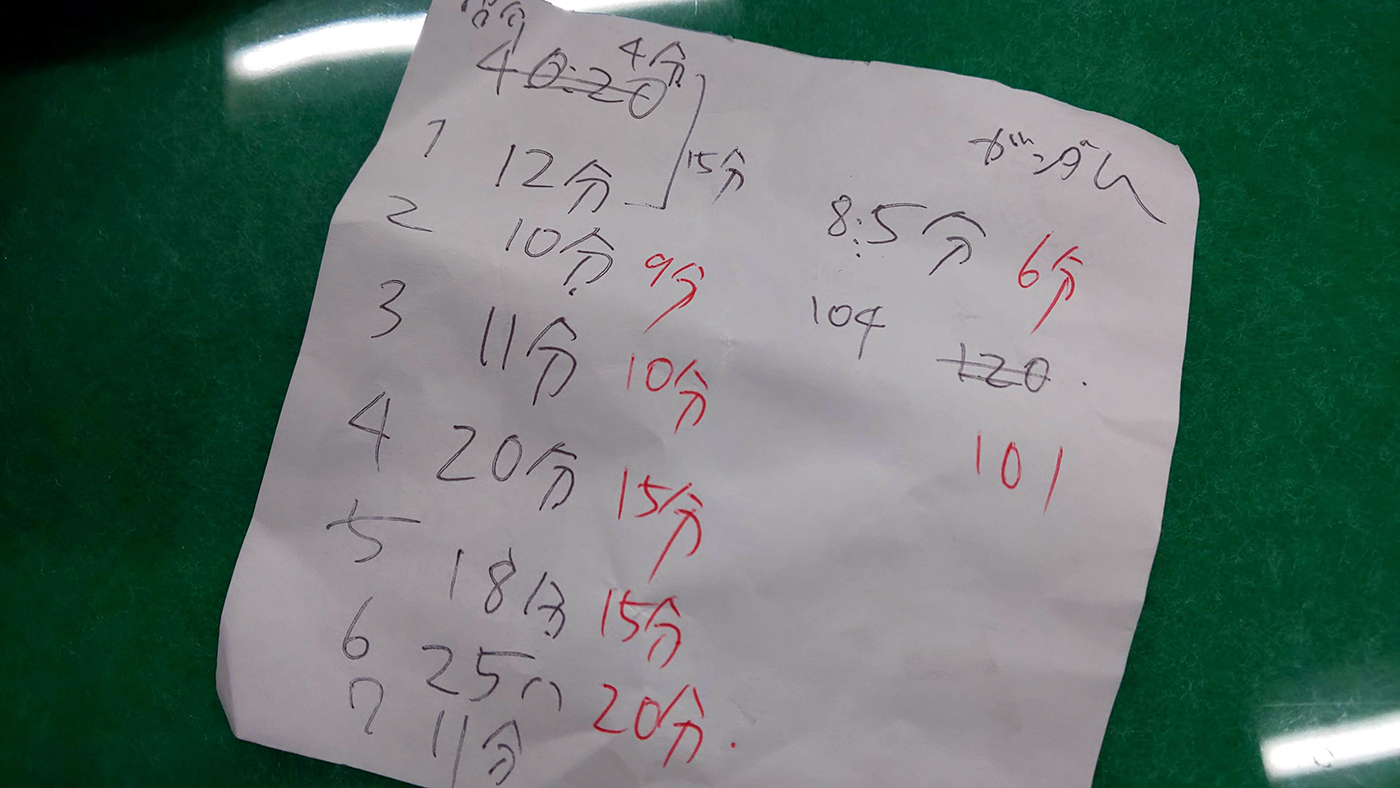 4分
40:20
1 12分 15分
2 10分 9分
3 11分 10分
4 20分 15分
5 18分 15分
6 25分 20分.
7 11分
ガンダム
8:5分 6分
104 120.
101